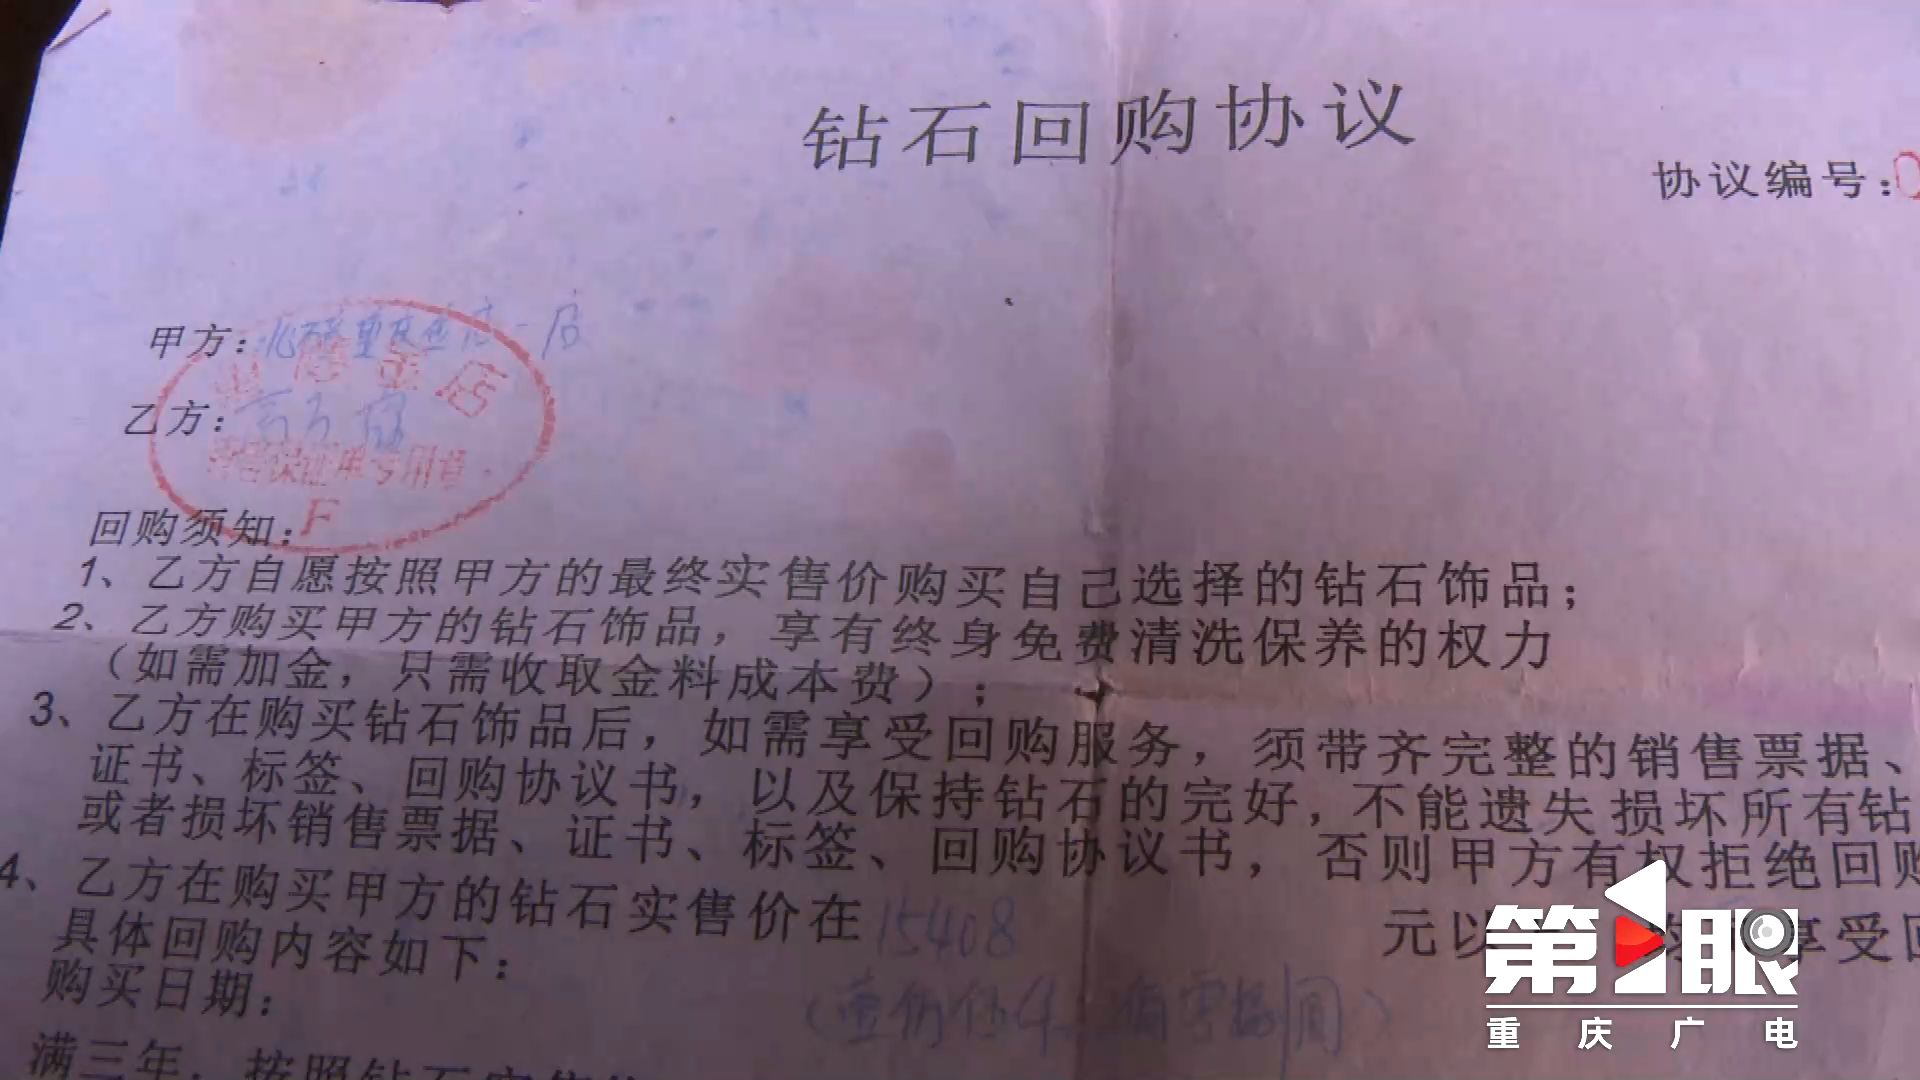 钻石回购协议
协议编号：
甲方：
乙方：
金店
专用章
F
回购须知：
1、乙方自愿按照甲方的最终实售价购买自己选择的钻石饰品；
2、乙方购买甲方的钻石饰品，享有终身免费清洗保养的权力
（如需加金，只需收取金料成本费）；
3、乙方在购买钻石饰品后，如需享受回购服务，须带齐完整的销售票据、
证书、标签、回购协议书，以及保持钻石的完好，不能遗失损坏所有钻
或者损坏销售票据、证书、标签、回购协议书，否则甲方有权拒绝回购
4、乙方在购买甲方的钻石实售价在15408 元以 享受回
具体回购内容如下：
购买日期：
满三年，按照钻石实售
第1眼
重庆广电